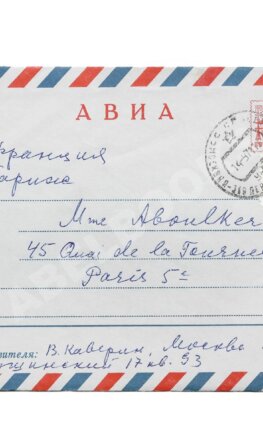 АВИА
Франция
Париж
Mme Aboulker
45 Quai de la Tournelle
Paris 5e
вителя: В. Каверин, Москва
шинский 17 кв. 93